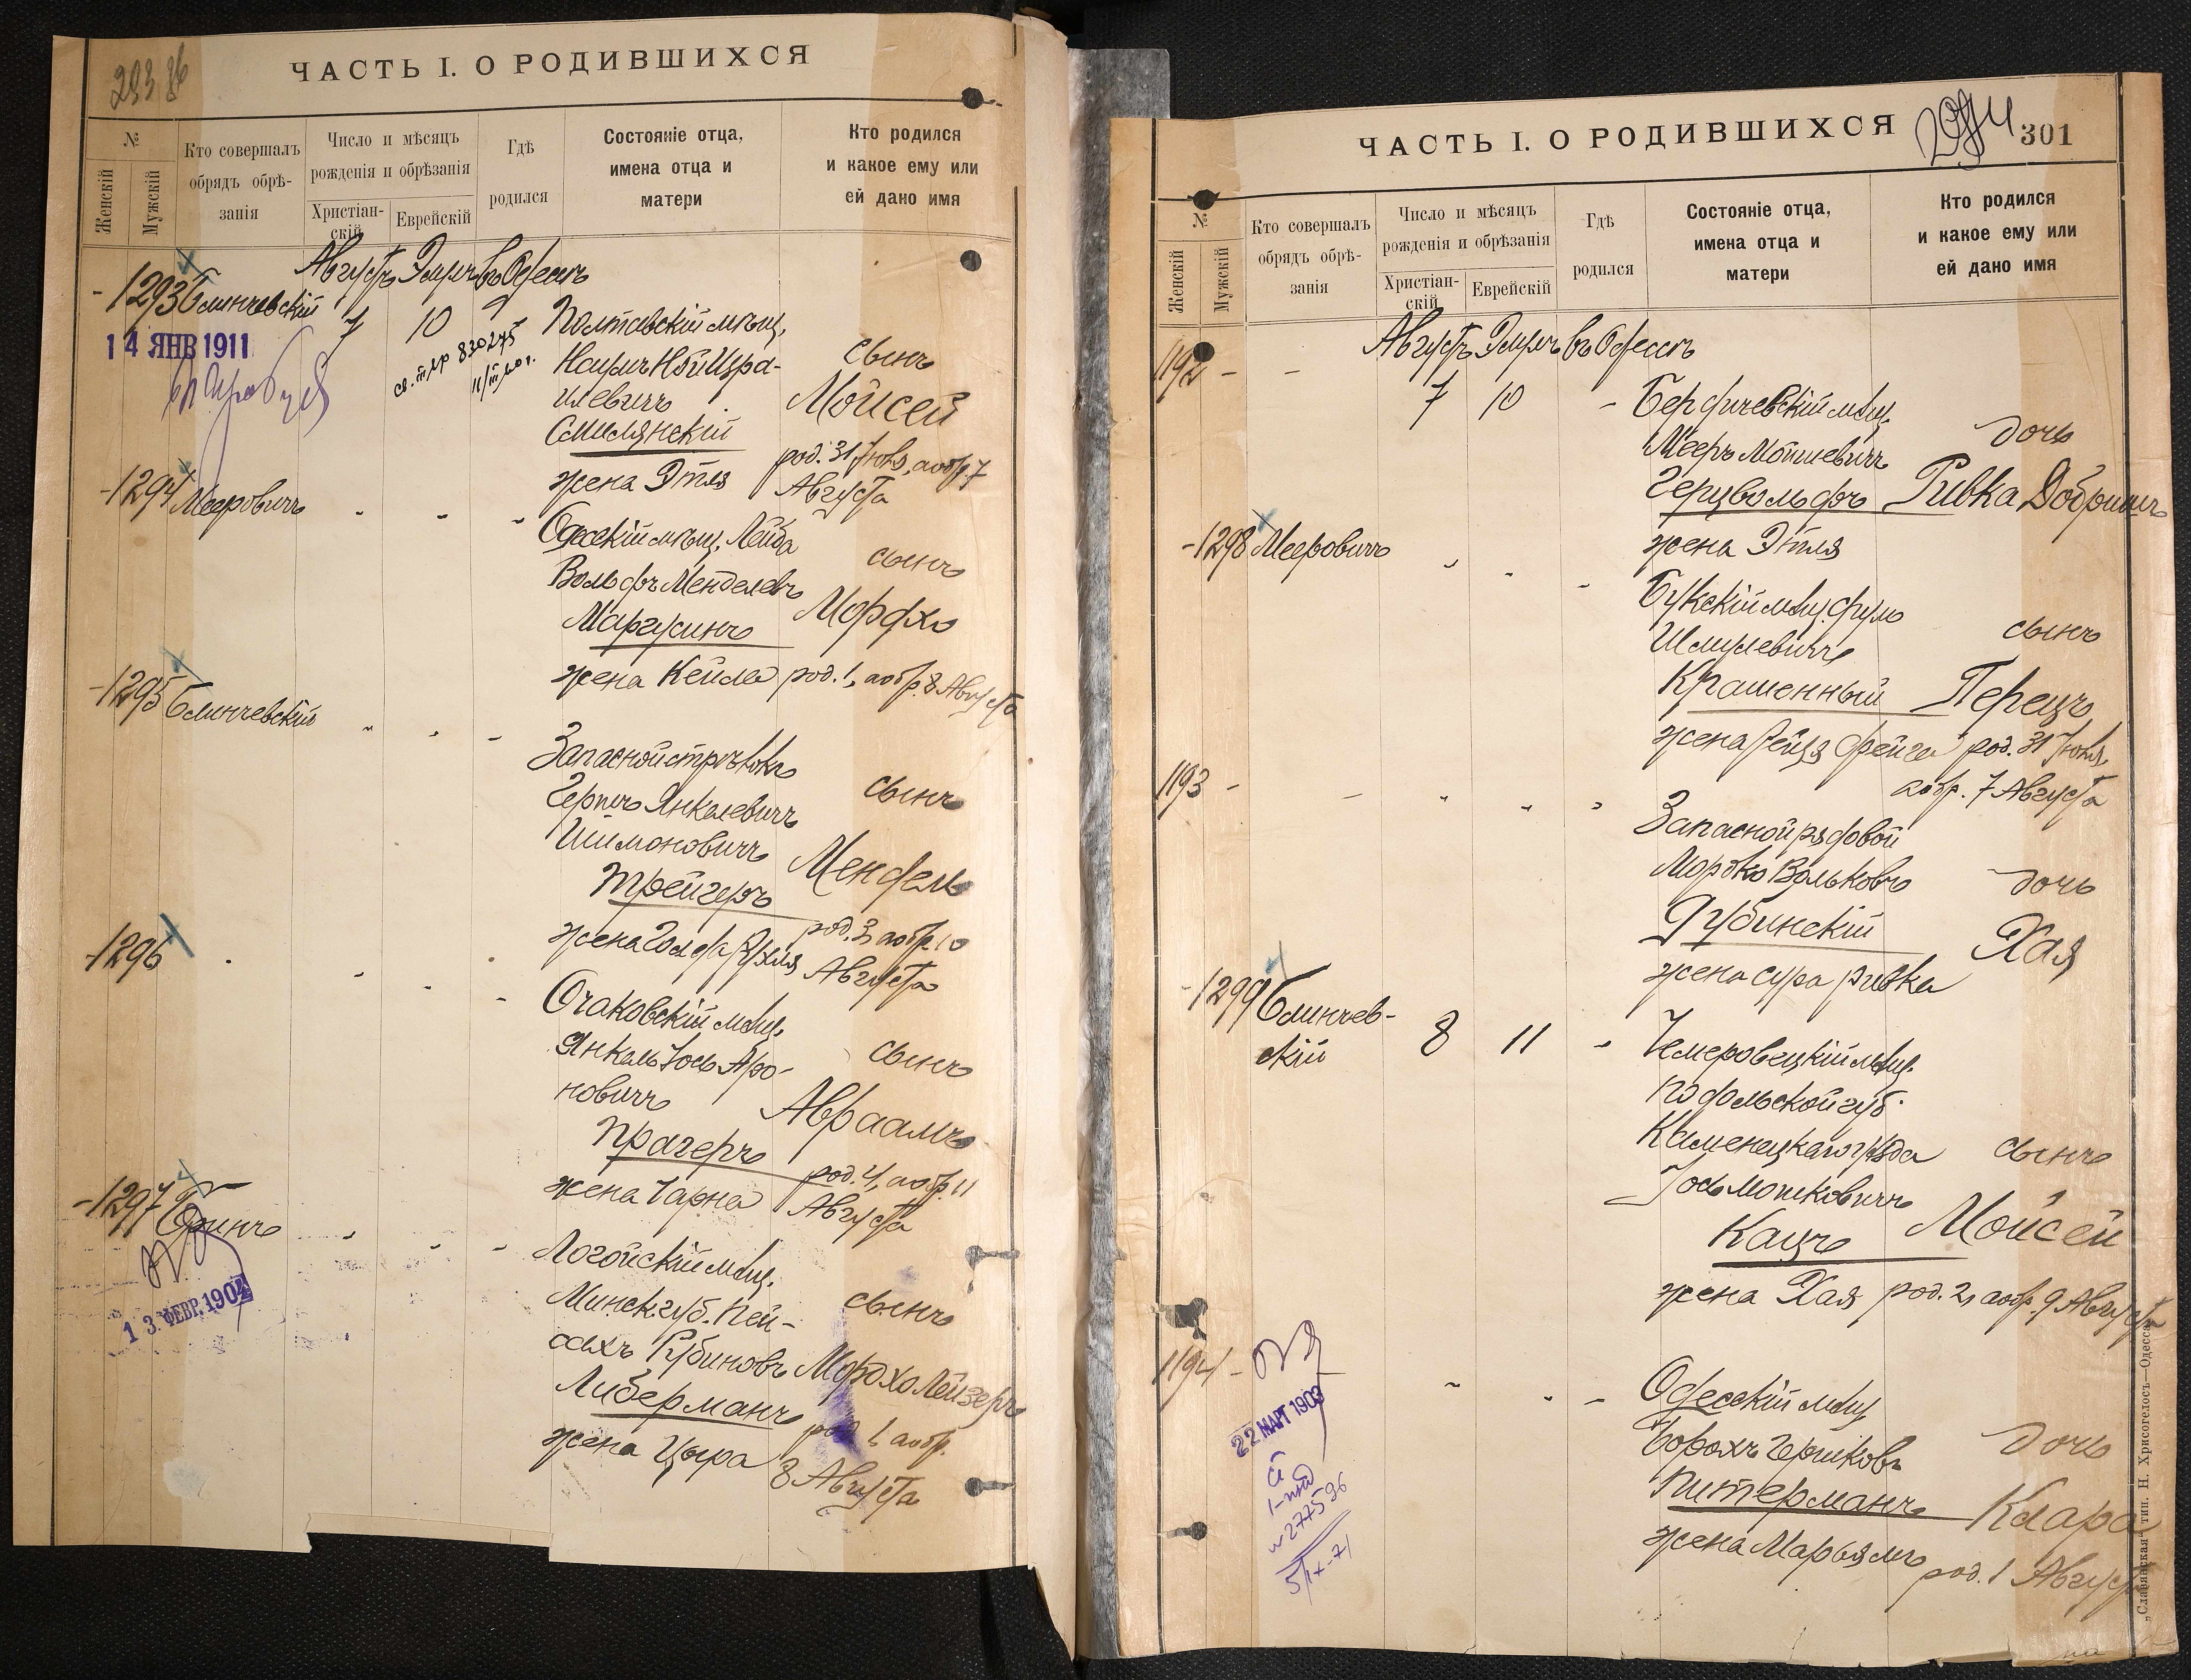 293
ЧАСТЬ I. О РОДИВШИХСЯ
№
Женскій
Мужскій
Кто совершалъ
обрядъ обрѣ-
занія
Число и мѣсяцъ
рожденія и обрѣзанія
Христіан-
скій
Еврейскій
Гдѣ
родился
Состояніе отца,
имена отца и
матери
Кто родился
и какое ему или
ей дано имя
Августъ Элулъ въ Одессѣ
1293 Блинчевскій 7 10
14 ЯНВ 1911
св. т. пр 830275
Полтавскій мѣщ.
Наумъ Нб̃и Изра-
илевичъ
Смилянскій
жена Этля
сынъ
Мойсей
род. 31 Іюля, а обр 7
Августа
1294 Мееровичъ
Одесскій мѣщ. Лейба
Вольфъ Менделевъ
Маргусинъ
жена Кейла
сынъ
Мордхо
род. 1, а обр. 8 Августа
1295 Блинчевскій
Запасной стрѣлокъ
Гершъ Янкелевичъ
Шимоновичъ
Трейгеръ
жена Голда Рухля
сынъ
Мендель
род. 3, а обр. 10
Августа
1296
Очаковскій мѣщ.
Янкель Іось Аро-
новичъ
Прагеръ
жена Чарна
сынъ
Авраамъ
род. 4, а обр. 11
Августа
1297
13 ФЕВР. 1904
Логойскій мѣщ.
Минск. губ. Пей-
сахъ Рубиновъ
Либерманъ
жена Цыра
сынъ
Мордхо Лейзеръ
род. 1, а обр.
8 Августа
ЧАСТЬ I. О РОДИВШИХСЯ
294
301
№
Женскій
Мужскій
Кто совершалъ
обрядъ обрѣ-
занія
Число и мѣсяцъ
рожденія и обрѣзанія
Христіан-
скій
Еврейскій
Гдѣ
родился
Состояніе отца,
имена отца и
матери
Кто родился
и какое ему или
ей дано имя
Августъ Элулъ въ Одессѣ
1192 - - 7 10
Бердичевскій мѣщ.
Мееръ Мошкевичъ
Герцвольфъ
жена Этля
дочь
Ривка Добришъ
1298 Мееровичъ
Букскій мѣщ.
Шмулевичъ
Крашенный
жена Рейзя Фейга
сынъ
Перецъ
род. 31 Іюля,
а обр. 7 Августа
1193 - -
Запасной рядовой
Мордко Вольковъ
Дубинскій
жена Сура Ривка
дочь
Хая
1299 Блинчев-
скій 8 11
Чемеровецкій мѣщ.
Подольской губ.
Каменецкаго уѣзда
Іось Мошковичъ
Кацъ
жена Хая
сынъ
Мойсей
род. 2, а обр. 9 Августа
1194 -
22 МАРТ 1903
277596
5/IX-71
Одесскій мѣщ.
Борохъ Гершковъ
Питерманъ
жена Марьямъ
дочь
Клара
род. 1 Августа
„Славянская“ тип. Н. Хрисогелосъ—Одесса.